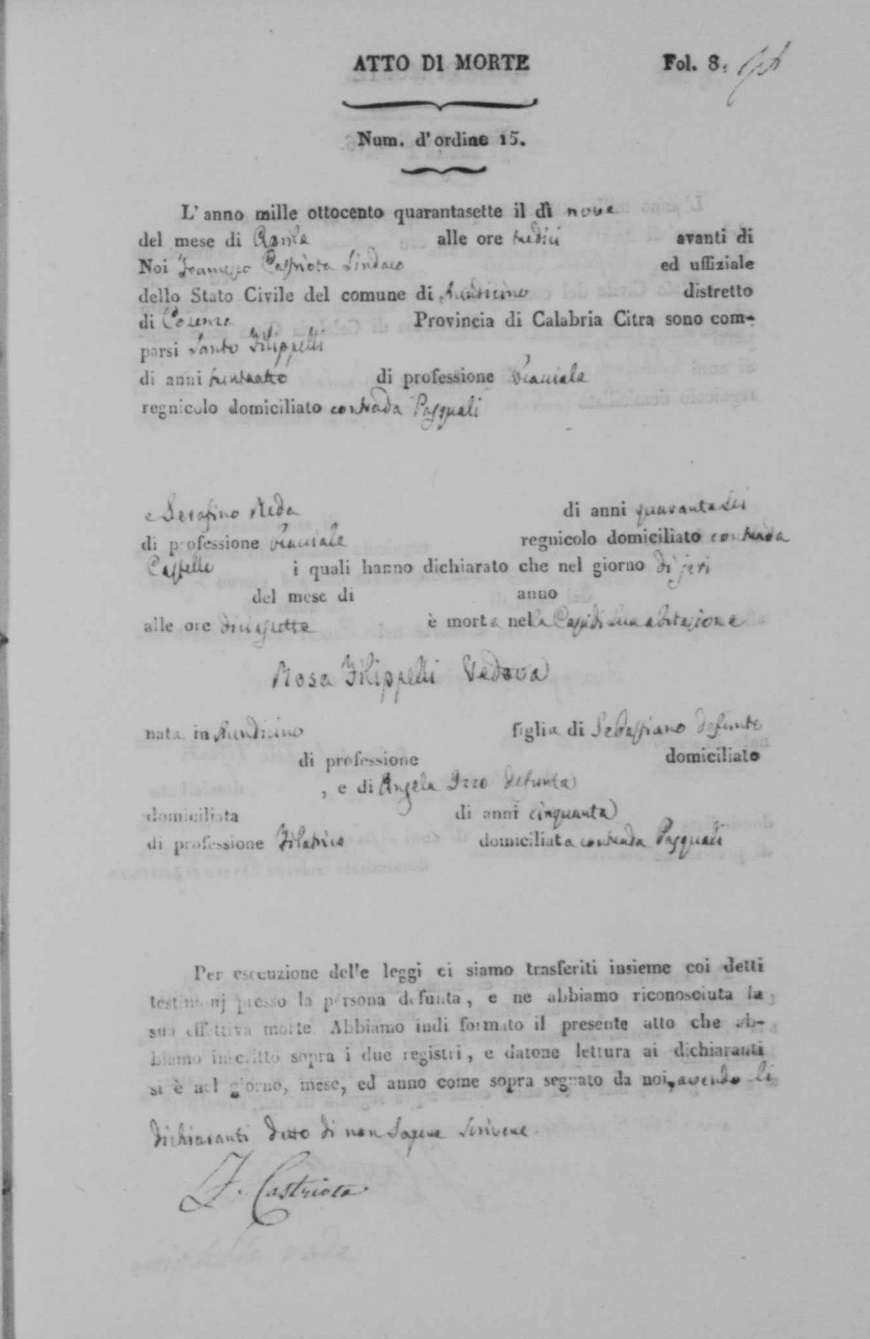 ATTO DI MORTE Fol. 8.
Num. d'ordine 15.
L'anno mille ottocento quarantasette il dì nove
del mese di alle ore tredici avanti di
Noi Francesco Castriota Sindaco ed uffiziale
dello Stato Civile del comune di distretto
di Cosenza Provincia di Calabria Citra sono com-
parsi Santo Filippelli
di anni di professione bracciale
regnicolo domiciliato contrada Pasquali
e Serafino Reda di anni quarantasei
di professione bracciale regnicolo domiciliato contrada
i quali hanno dichiarato che nel giorno di jeri
del mese di anno
alle ore diciasette è morta nella Casa di sua abitazione
Rosa Filippelli Vedova
nata in figlia di Sebastiano defunto
di professione domiciliato
, e di Angela defunta
domiciliata di anni cinquanta
di professione Filatrice domiciliata contrada Pasquali
Per esecuzione delle leggi ci siamo trasferiti insieme coi detti
testimonj presso la persona defunta, e ne abbiamo riconosciuta la
sua effettiva morte Abbiamo indi formato il presente atto che ab-
biamo inscritto sopra i due registri, e datone lettura ai dichiaranti
si è nel giorno, mese, ed anno come sopra segnato da noi, avendo li
dichiaranti detto di non sapere scrivere.
F. Castriota